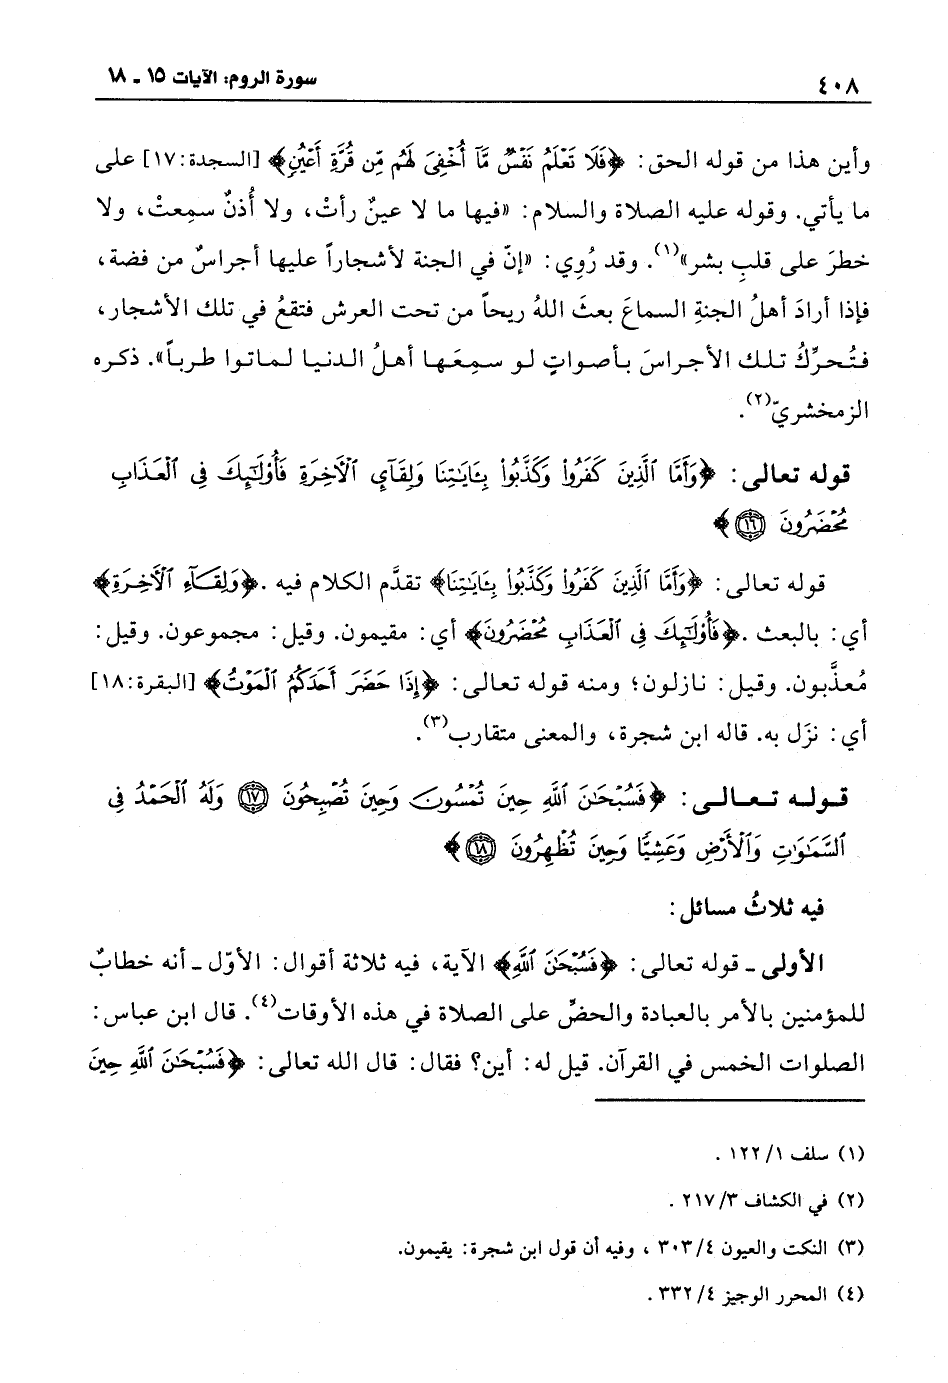 ٤٠٨ سورة الروم: الآيات ١٥ - ١٨
وأين هذا من قوله الحق: ﴿فَلَا تَعْلَمُ نَفْسٌ مَّآ أُخْفِىَ لَهُم مِّن قُرَّةِ أَعْيُنٍ﴾ [السجدة:١٧] على
ما يأتي. وقوله عليه الصلاة والسلام: «فيها ما لا عينٌ رأتْ، ولا أُذنٌ سمِعتْ، ولا
خطرَ على قلبِ بشر»(١). وقد رُوِي: «إنّ في الجنة لأشجاراً عليها أجراسٌ من فضة،
فإذا أرادَ أهلُ الجنةِ السماعَ بعثَ اللهُ ريحاً من تحت العرش فتقعُ في تلك الأشجار،
فتُحرِّكُ تلك الأجراسَ بأصواتٍ لو سمِعَها أهلُ الدنيا لماتوا طرباً». ذكره
الزمخشريّ(٢).
قوله تعالى: ﴿وَأَمَّا ٱلَّذِينَ كَفَرُوا۟ وَكَذَّبُوا۟ بِـَٔايَـٰتِنَا وَلِقَآئِ ٱلْـَٔاخِرَةِ فَأُو۟لَـٰٓئِكَ فِى ٱلْعَذَابِ
مُحْضَرُونَ ١٦﴾
قوله تعالى: ﴿وَأَمَّا ٱلَّذِينَ كَفَرُوا۟ وَكَذَّبُوا۟ بِـَٔايَـٰتِنَا﴾ تقدَّم الكلام فيه. ﴿وَلِقَآءِ ٱلْـَٔاخِرَةِ﴾
أي: بالبعث. ﴿فَأُو۟لَـٰٓئِكَ فِى ٱلْعَذَابِ مُحْضَرُونَ﴾ أي: مقيمون. وقيل: مجموعون. وقيل:
مُعذَّبون. وقيل: نازلون؛ ومنه قوله تعالى: ﴿إِذَا حَضَرَ أَحَدَكُمُ ٱلْمَوْتُ﴾ [البقرة:١٨]
أي: نزَل به. قاله ابن شجرة، والمعنى متقارب(٣).
قوله تعالى: ﴿فَسُبْحَـٰنَ ٱللَّهِ حِينَ تُمْسُونَ وَحِينَ تُصْبِحُونَ ١٧ وَلَهُ ٱلْحَمْدُ فِى
ٱلسَّمَـٰوَٰتِ وَٱلْأَرْضِ وَعَشِيًّا وَحِينَ تُظْهِرُونَ ١٨﴾
فيه ثلاثُ مسائل:
الأولى - قوله تعالى: ﴿فَسُبْحَـٰنَ ٱللَّهِ﴾ الآية، فيه ثلاثة أقوال: الأوّل - أنه خطابٌ
للمؤمنين بالأمر بالعبادة والحضِّ على الصلاة في هذه الأوقات(٤). قال ابن عباس:
الصلوات الخمس في القرآن. قيل له: أين؟ فقال: قال الله تعالى: ﴿فَسُبْحَـٰنَ ٱللَّهِ حِينَ
(١) سلف ١/ ١٢٢ .
(٢) في الكشاف ٣/ ٢١٧ .
(٣) النكت والعيون ٤/ ٣٠٣ ، وفيه أن قول ابن شجرة: يقيمون.
(٤) المحرر الوجيز ٤/ ٣٣٢ .